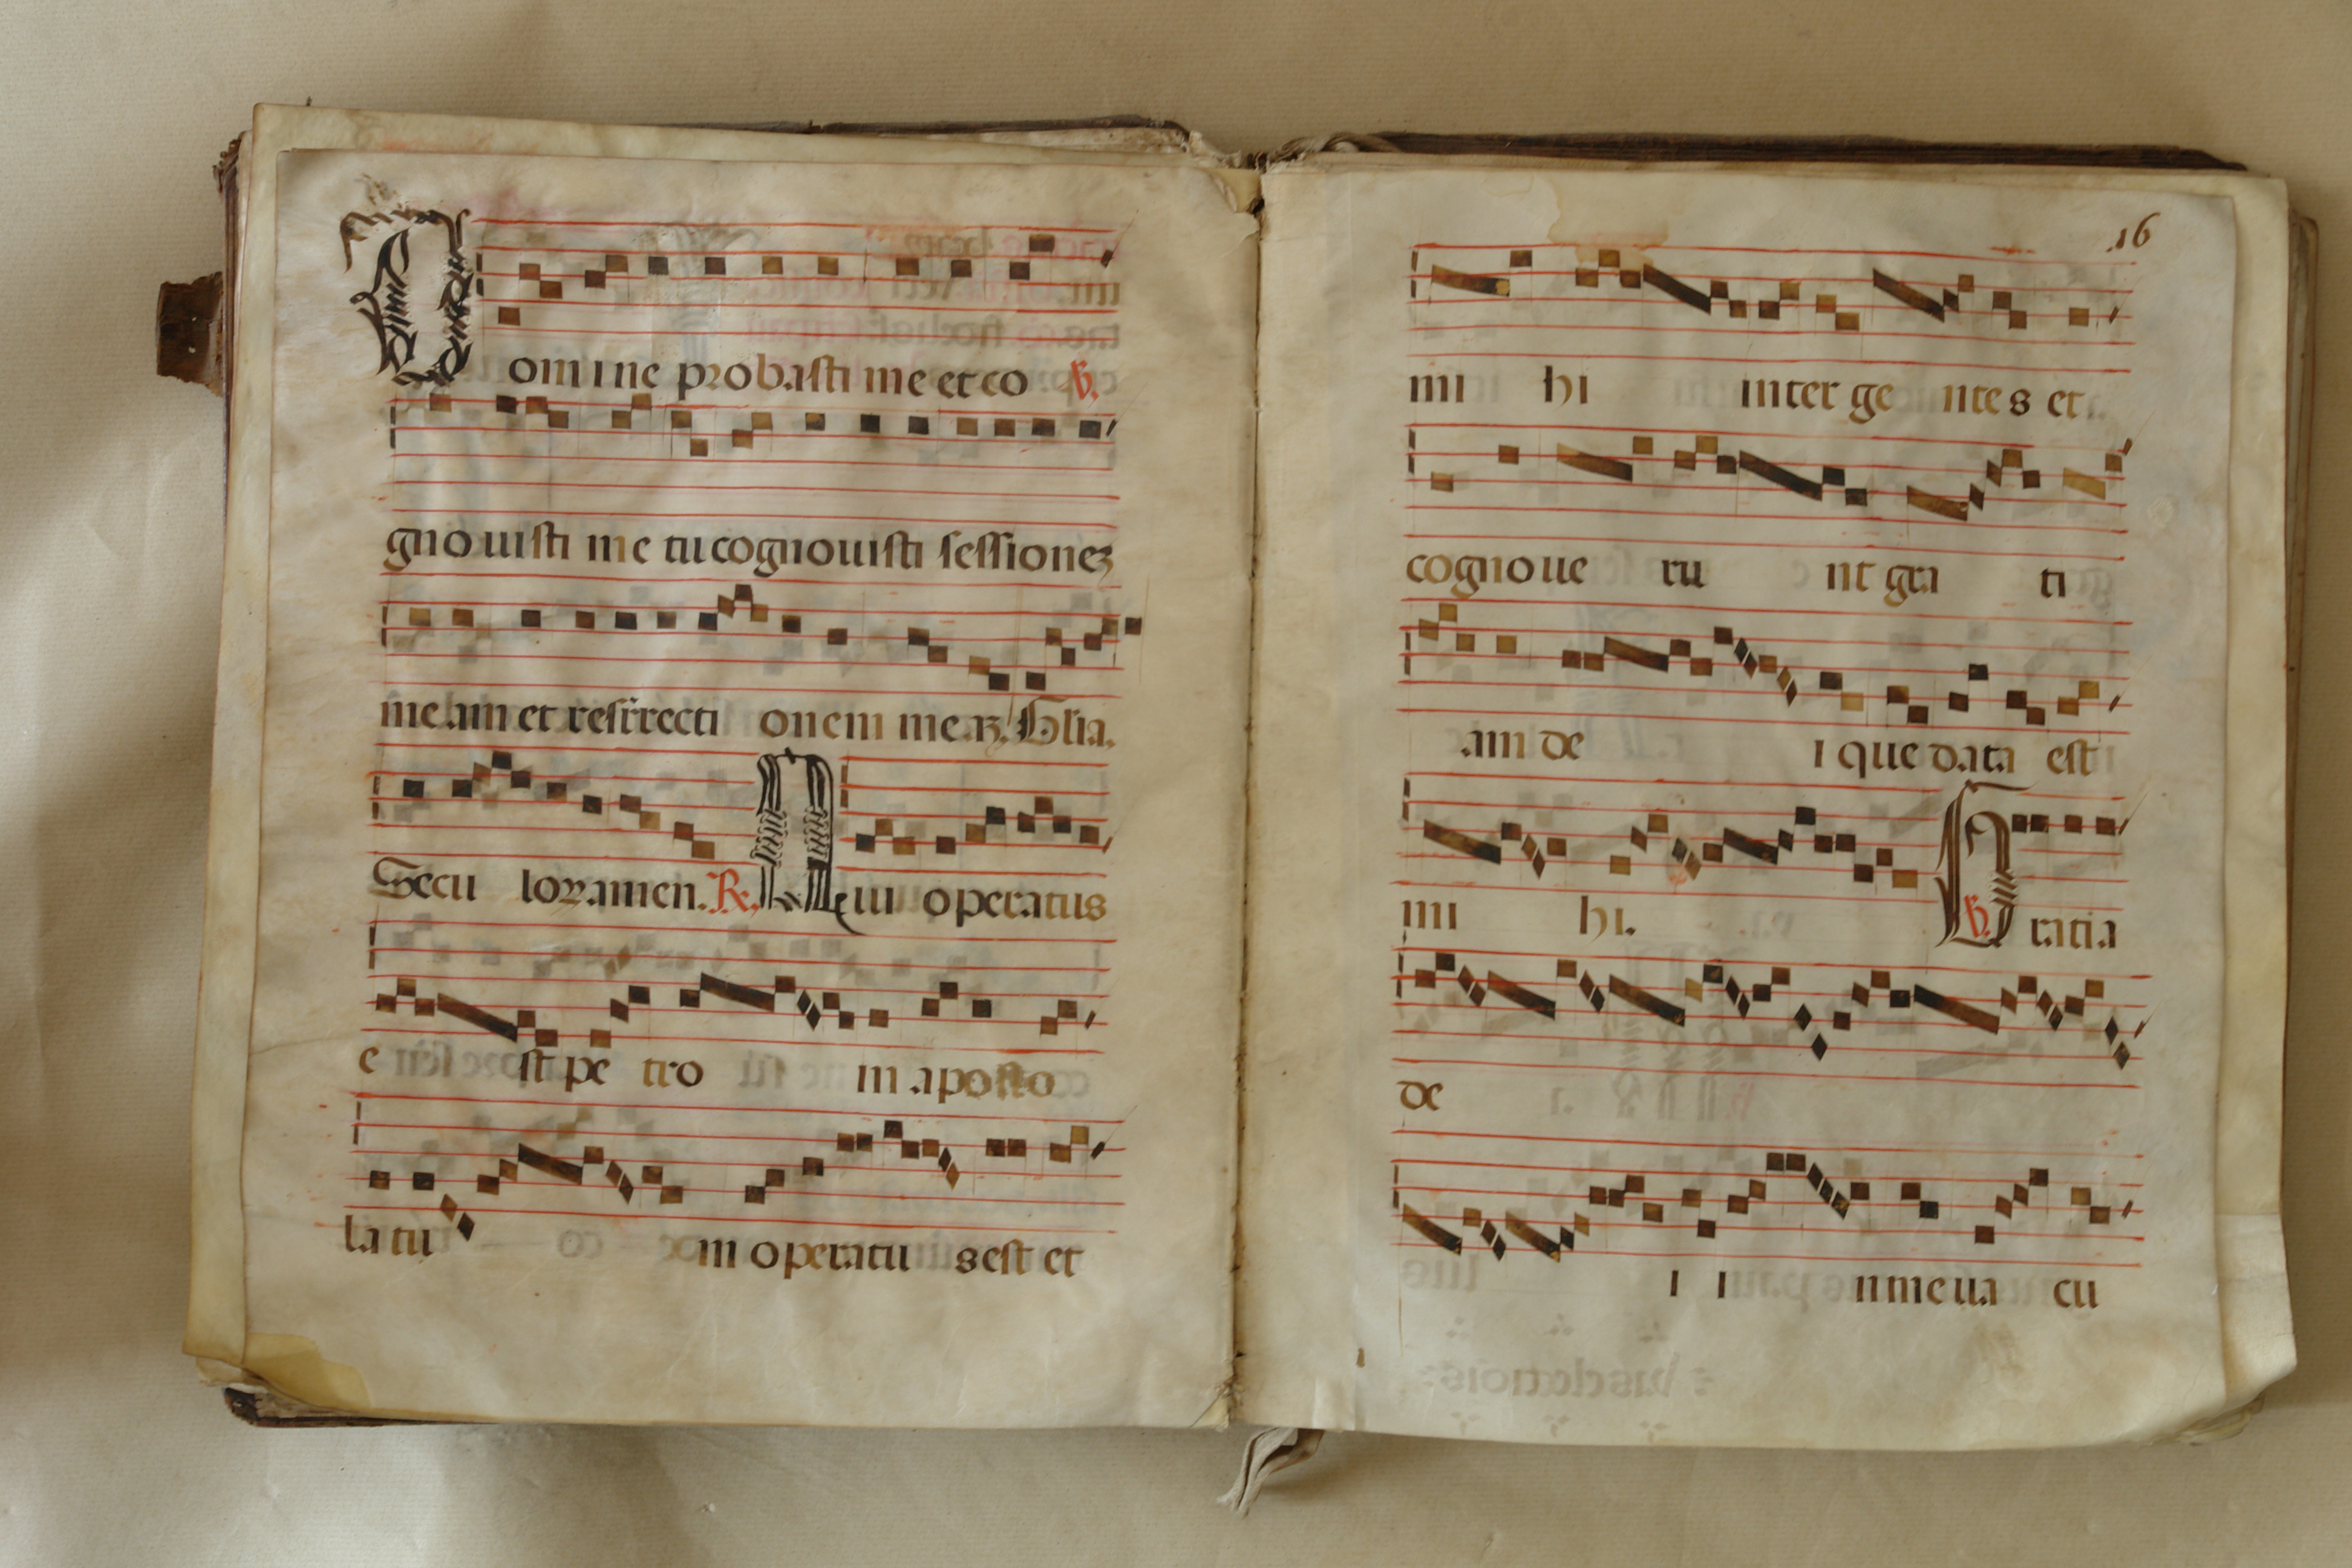 Domine probasti me et co ℣.
gnouisti me tu cognouisti sessionez
meam et resirrecti onem meaz. Glia.
Secu lor. amen. ℟. Qui operatus
e st pe tro in aposto
la tu m operatu s est et
16
mi hi inter ge nte s et
cognoue ru nt gra ti
am de i que data est
mi hi. ℣. Gratia
de
i i n me ua cu